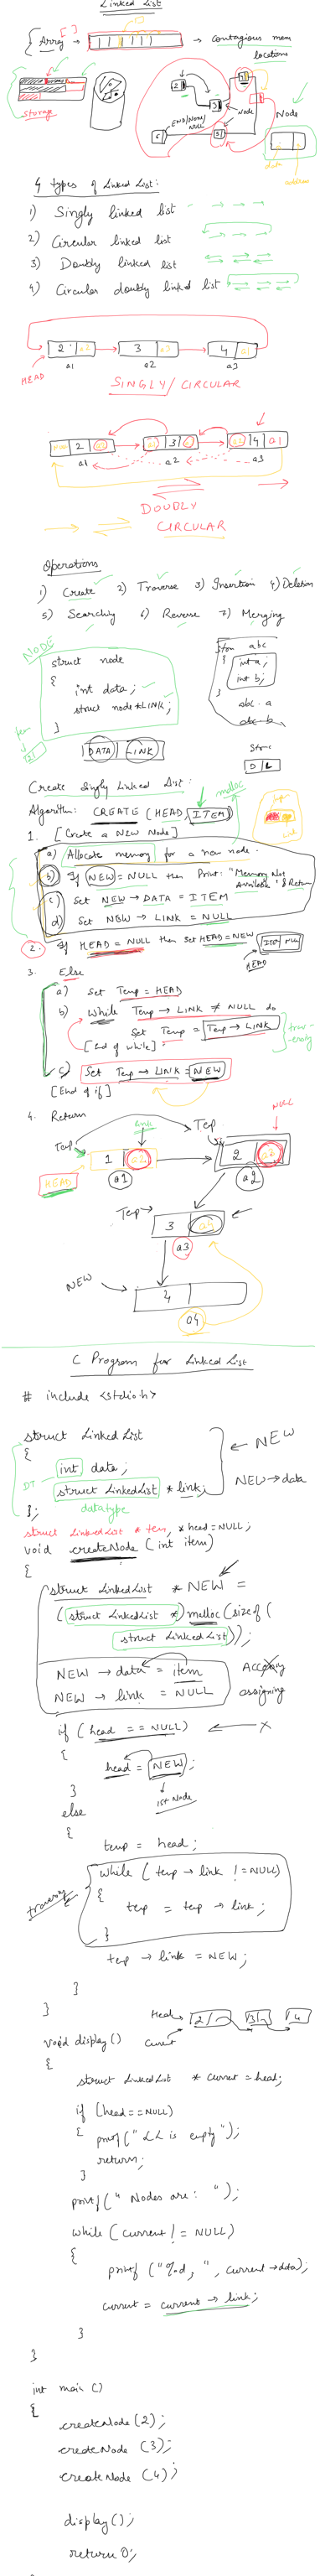 Linked List
{ Array [ ] → → Contagious mem
locations
storage
2
3
5
6
END/NONE/
NULL
Node
Node
data
address
4 types of Linked List:
1) Singly linked list
2) Circular linked list
3) Doubly linked list
4) Circular doubly linked list
2 a2 3 a3 4 a1
HEAD a1 a2 a3
SINGLY/CIRCULAR
2 3 4 a1
a1 a2 a3
DOUBLY
CIRCULAR
Operations
1) Create 2) Traverse 3) Insertion 4) Deletion
5) Searching 6) Reverse 7) Merging
NODE
struct node
{
int data;
struct node*LINK;
}
DATA LINK
abc
{ int a;
int b;
}
abc. a
abc. b
D L
Create Singly Linked List:
malloc
Algorithm: CREATE (HEAD, ITEM)
1. [Create a NEW Node]
a) Allocate memory for a new node.
b) If NEW = NULL then Print: "Memory Not
Available" & Return
c) Set NEW → DATA = ITEM
d) Set NEW → LINK = NULL
2. If HEAD = NULL then Set HEAD = NEW
HEAD
3. Else
a) Set Temp = HEAD
b) While Temp → LINK ≠ NULL do
Set Temp = Temp → LINK
[End of while]
trav-
ersing
c) Set Temp → LINK = NEW
[End of if]
4. Return
NULL
link
Temp
Temp
1 a2 2 a3
HEAD a1 a2
Temp →
3 a4
a3
NEW
4
a4
C Program for Linked List
# include <stdio.h>
struct Linked List
{
int data;
struct LinkedList * link;
};
DT
datatype
← NEW
NEW → data
struct LinkedList * tem, * head = NULL;
void createNode (int item)
{
struct LinkedList * NEW =
(struct LinkedList *) malloc (sizeof (
struct LinkedList));
NEW → data = item
NEW → link = NULL
assigning
if (head == NULL) ← X
{
head = NEW;
1st Node
}
else
{
temp = head;
while (temp → link != NULL)
{
temp = temp → link;
}
traversing
temp → link = NEW;
}
}
Head 2 3 4
Current
void display ()
{
struct LinkedList * current = head;
if (head == NULL)
{ printf ("LL is empty");
return;
}
printf (" Nodes are: ");
while (current != NULL)
{
printf ("%d, ", current → data);
current = current → link;
}
}
int main ()
{
createNode (2);
createNode (3);
createNode (4);
display ();
return 0;